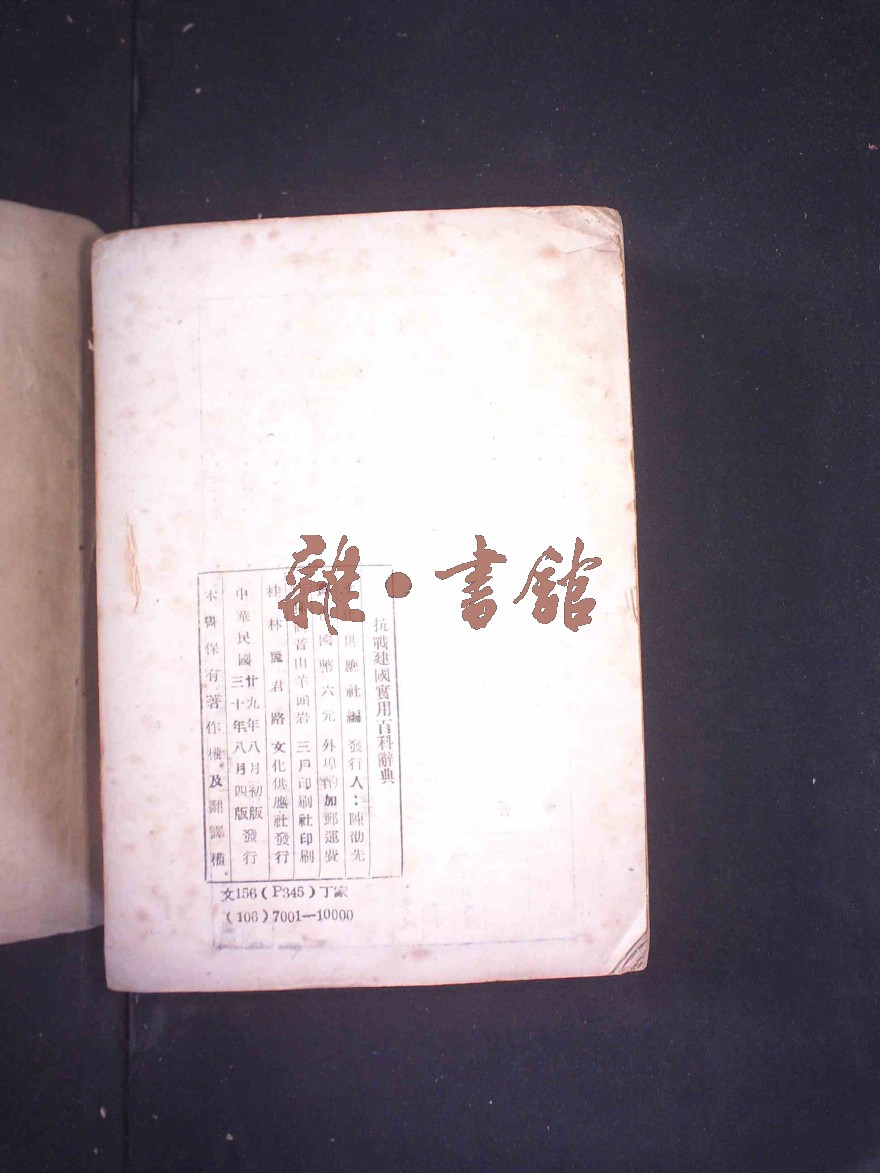 抗戰建國實用百科辭典
供應社編 發行人：陳劭先
國幣六元 外埠酌加郵運費
普山羊頭岩 三戶印刷社印刷
桂林 君路 文化供應社發行
中華民國廿九年八月初版發行
三十年八月四版
本書保有著作權及翻譯權
文156(P345)丁家
(106)7001—10000
雜·書館